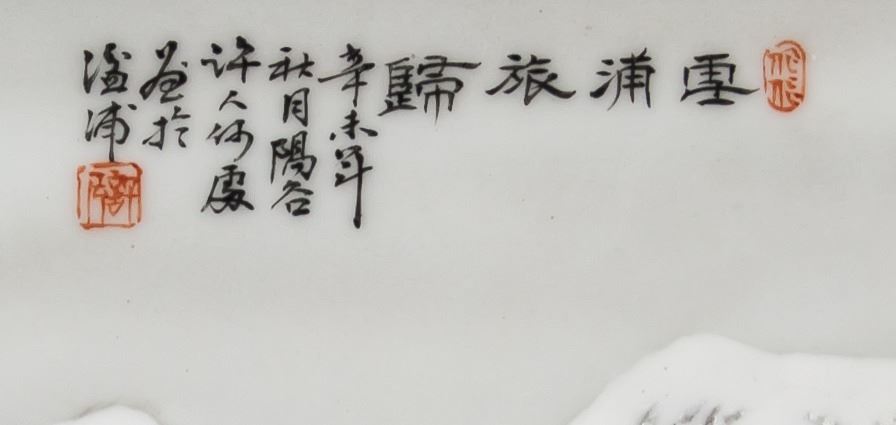 雪浦旅歸
辛未年
秋月陽谷
許人何處
畫於
湓浦